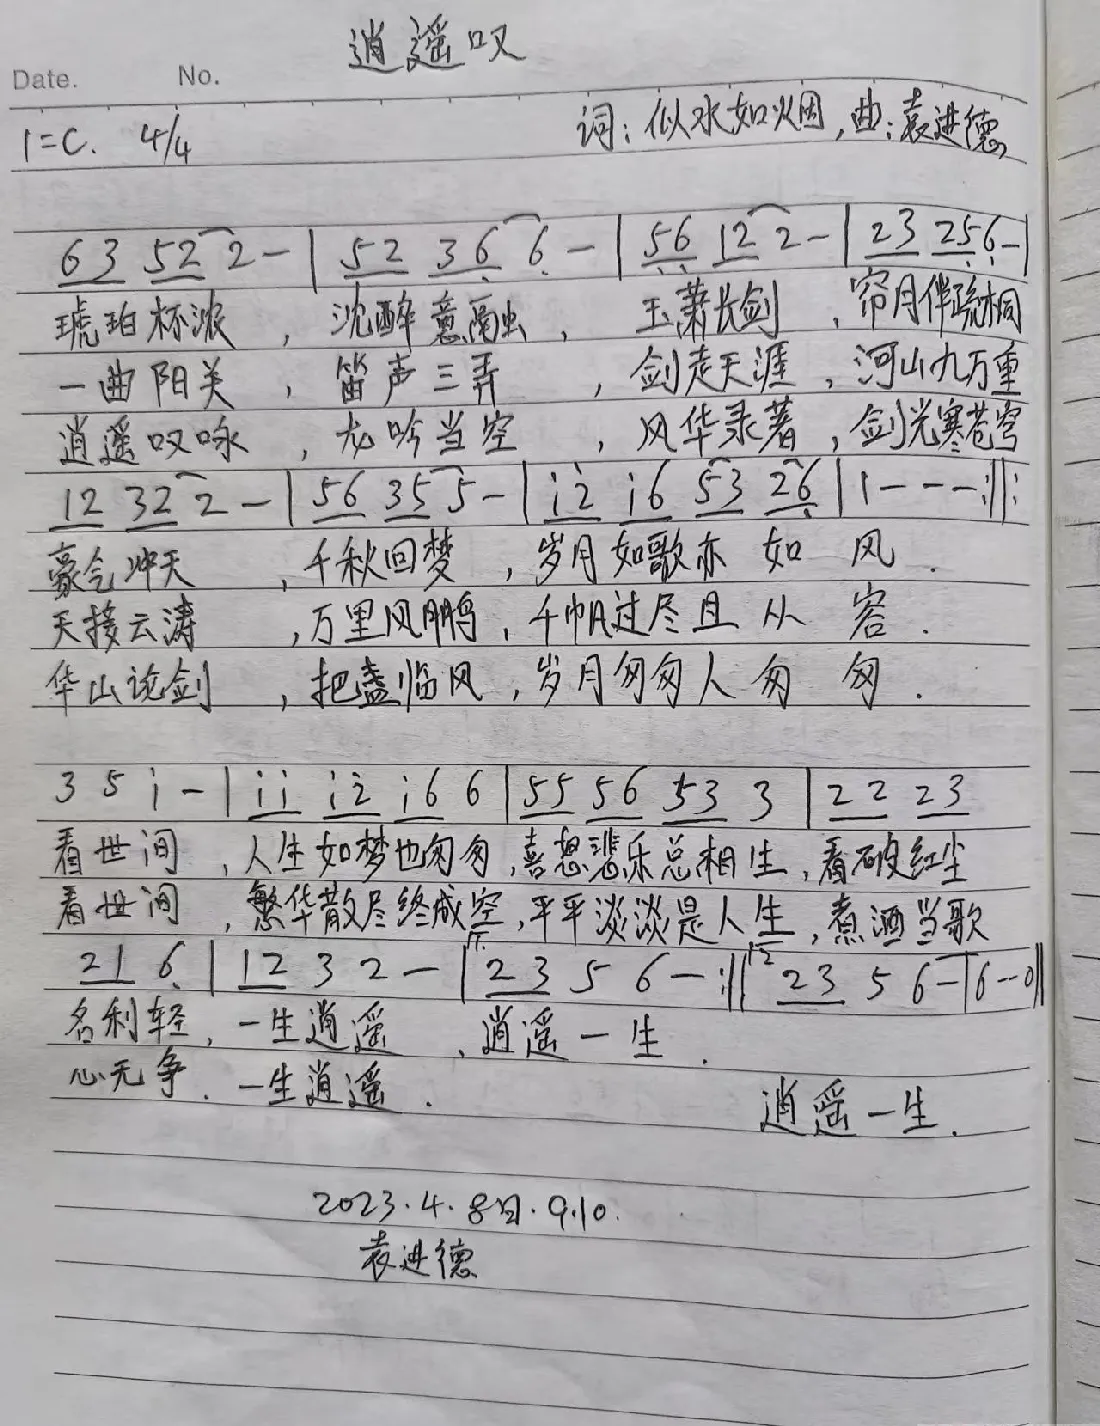 逍遥叹
Date. No.
1=C. 4/4 词:似水如烟,曲:袁进德
63 52 2 - | 52 36 6 - | 56 12 2 - | 23 256 - |
琥珀杯浓 , 沈醉意融 , 玉萧长剑 , 帘月伴疏桐
一曲阳关 , 笛声三弄 , 剑走天涯 , 河山九万重
逍遥叹咏 , 龙吟当空 , 风华录著 , 剑光寒苍穹
12 32 2 - | 56 35 5 - | i2 i6 53 26 | 1 - - - :||:
豪气冲天 , 千秋回梦 , 岁月如歌亦 如 风 .
天接云涛 , 万里风鹏 , 千帆过尽且 从 容 .
华山论剑 , 把盏临风 , 岁月匆匆人 匆 匆 .
3 5 i - | ii i2 i6 6 | 55 56 53 3 | 22 23
看世间 , 人生如梦也匆匆 , 喜怒悲乐总相生 , 看破红尘
看世间 , 繁华散尽终成空 , 平平淡淡是人生 , 煮酒当歌
21 6 | 12 3 2 - | 1. 23 5 6 - :|| 2 23 5 6 - | 6 - 0 ||
名利轻 , 一生逍遥 , 逍遥一生 .
心无争 . 一生逍遥 . 逍遥一生 .
2023.4.8日.9.10.
袁进德